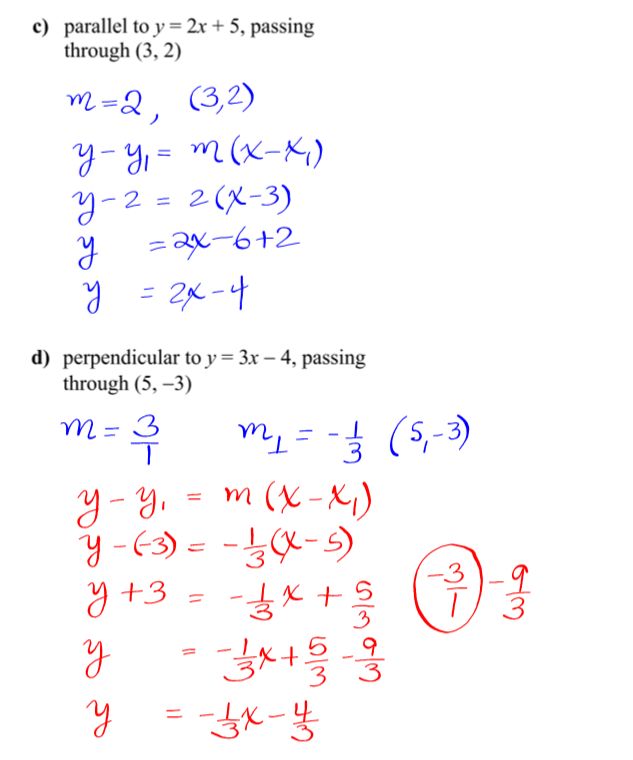 c) parallel to y = 2x + 5, passing
through (3, 2)
m = 2, (3,2)
y - y₁ = m(x - x₁)
y - 2 = 2(x - 3)
y = 2x - 6 + 2
y = 2x - 4
d) perpendicular to y = 3x – 4, passing
through (5, –3)
m = 3/1 m⊥ = -1/3 (5,-3)
y - y₁ = m(x - x₁)
y - (-3) = -1/3(x - 5)
y + 3 = -1/3x + 5/3 -3/1 - 9/3
y = -1/3x + 5/3 - 9/3
y = -1/3x - 4/3